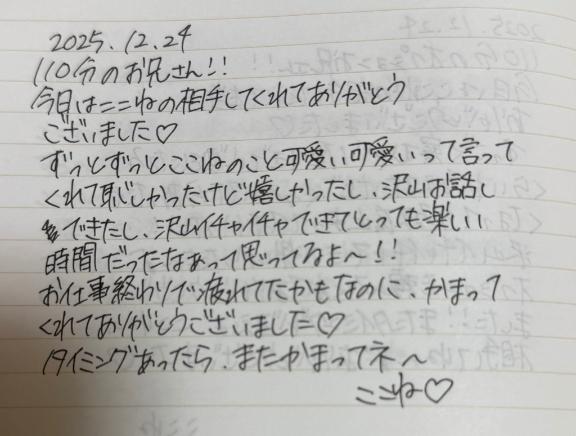 2025.12.24
110分のお兄さん!!
今日はここねの相手してくれてありがとう
ございました♡
ずっとずっとここねのこと可愛い可愛いって言って
くれて恥しかったけど嬉しかったし、沢山お話し
できたし、沢山イチャイチャできてとっても楽しい
時間だったなぁって思ってるよ〜!!
お仕事終わりで疲れてたかもなのに、かまって
くれてありがとうございました♡
タイミングあったら、またかまってネ〜
ここね♡